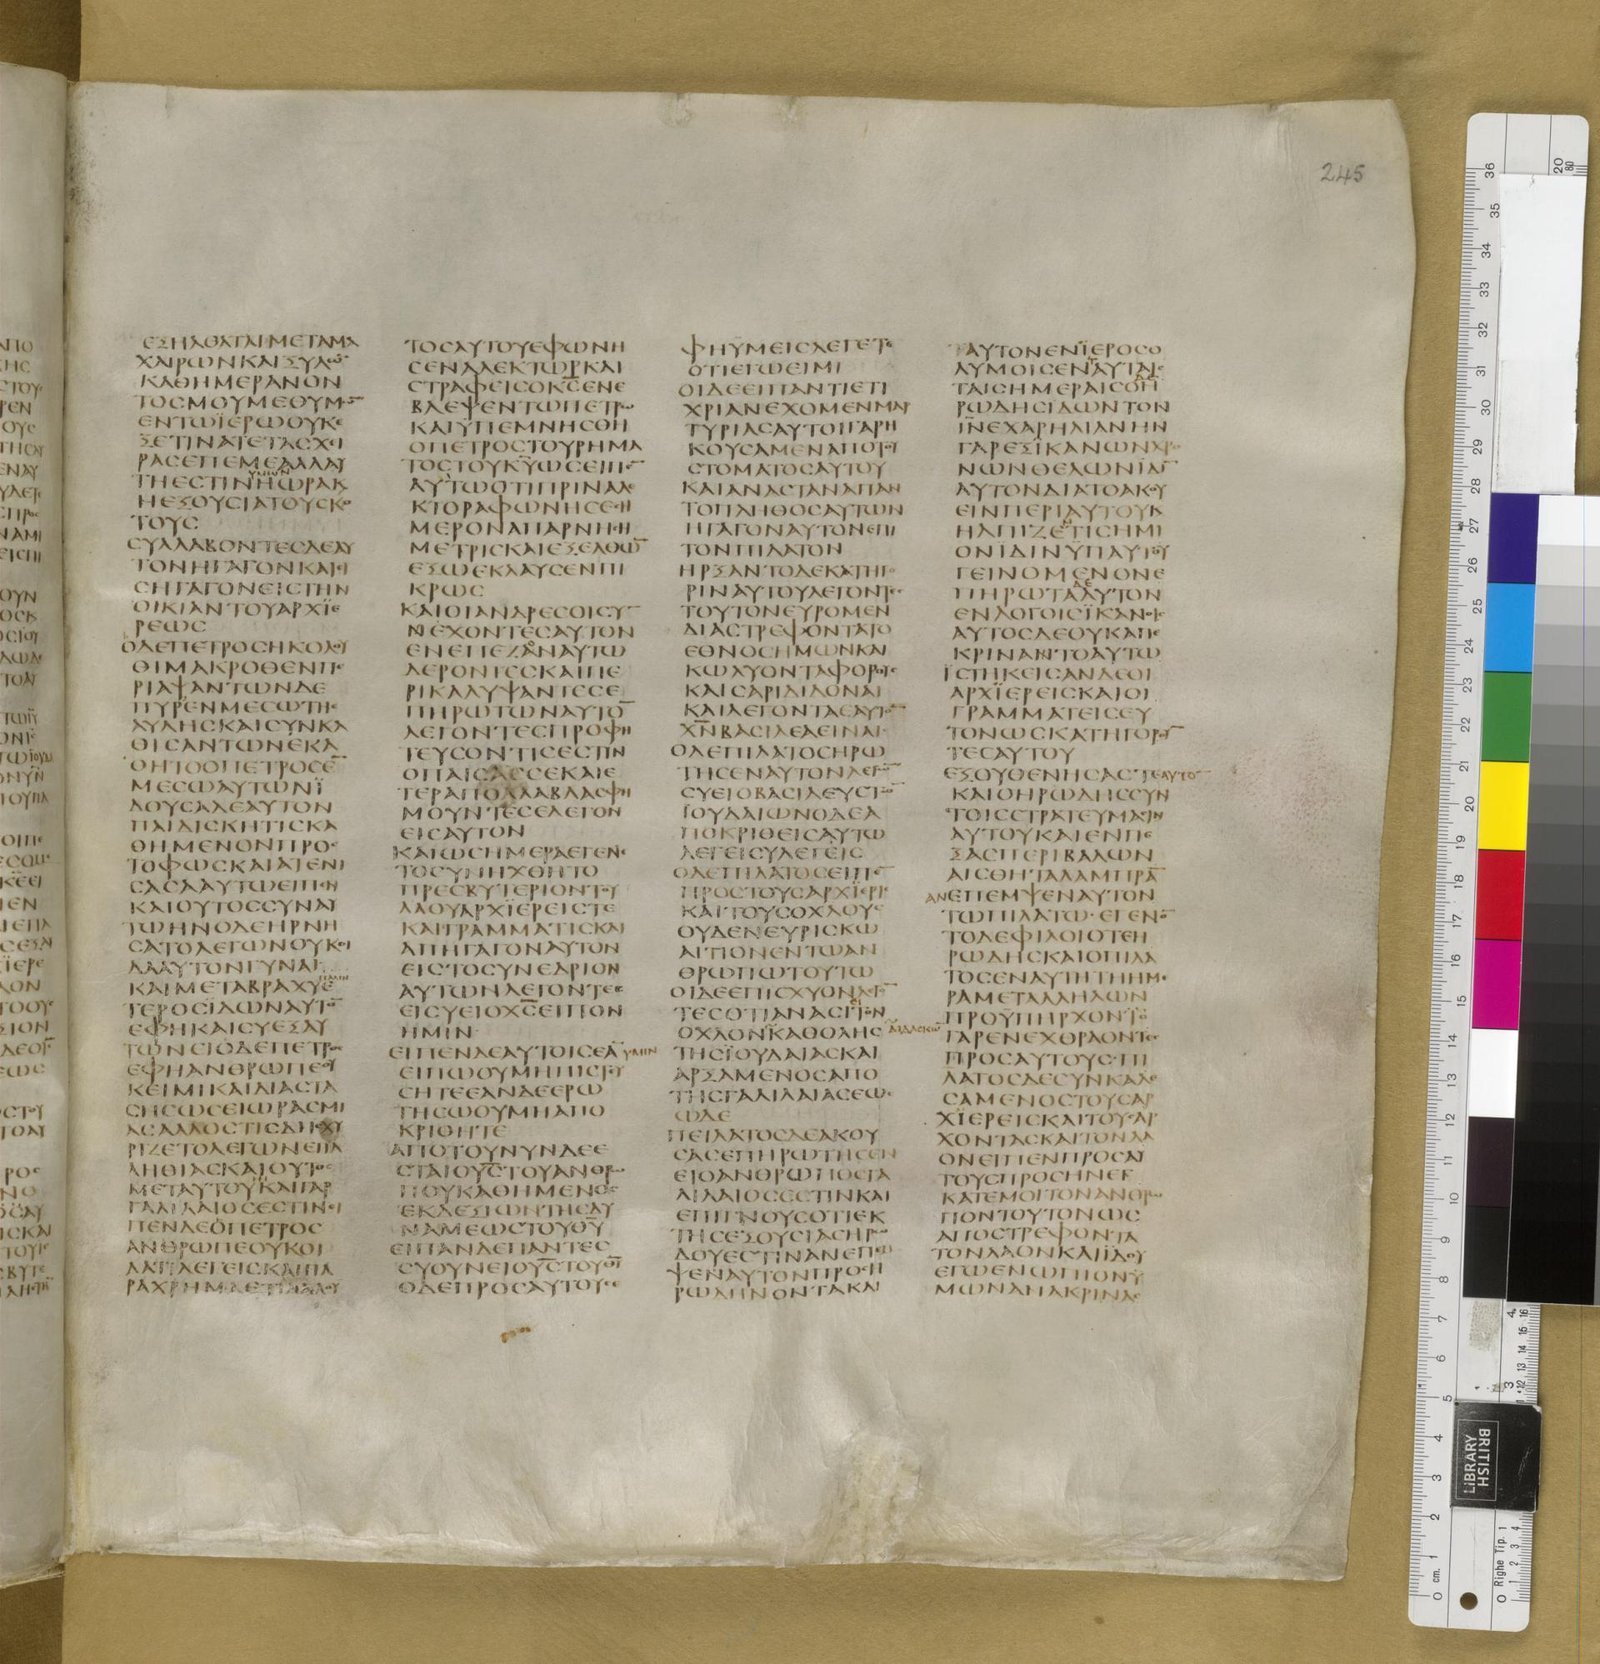 245
ΕΞΗΛΘΑΤΑΙΜΕΤΑΜΑ
ΧΑΙΡΩΝΚΑΙΞΥΛΩ̅
ΚΑΘΗΜΕΡΑΝΟΝ
ΤΟΣΜΟΥΜΕΘΥΜΩ̅
ΕΝΤΩΪΕΡΩΟΥΚΕ
ΞΕΤΙΝΑΤΕΤΑΣΧΕΙ
ΡΑΣΕΠΕΜΕΑΛΛΑΥ
ΤΗΕΣΤΙΝΗΩΡΑΚ
ΗΕΞΟΥΣΙΑΤΟΥΣΚΟ
ΤΟΥΣ
ΣΥΛΛΑΒΟΝΤΕΣΔΕΑΥ
ΤΟΝΗΓΑΓΟΝΚΑΙΕΙ
ΣΗΓΑΓΟΝΕΙΣΤΗΝ
ΟΙΚΙΑΝΤΟΥΑΡΧΪΕ
ΡΕΩΣ
ΟΔΕΠΕΤΡΟΣΗΚΟΛΟΥ
ΘΙΜΑΚΡΟΘΕΝΠΕ
ΡΙΑΨΑΝΤΩΝΔΕ
ΠΥΡΕΝΜΕΣΩΤΗΣ
ΑΥΛΗΣΚΑΙΣΥΝΚΑ
ΘΙΣΑΝΤΩΝΕΚΑ
ΘΗΤΟΟΠΕΤΡΟΣΕ̅
ΜΕΣΩΑΥΤΩΝΪ
ΔΟΥΣΑΔΕΑΥΤΟΝ
ΠΑΙΔΙΣΚΗΤΙΣΚΑ
ΘΗΜΕΝΟΝΠΡΟΣ
ΤΟΦΩΣΚΑΙΑΤΕΝΙ
ΣΑΣΑΑΥΤΩΕΙΠΕΝ
ΚΑΙΟΥΤΟΣΣΥΝΑΥ
ΤΩΗΝΟΔΕΗΡΝΗ
ΣΑΤΟΛΕΓΩΝΟΥΚΟΙ
ΔΑΑΥΤΟΝΓΥΝΑΙ
ΚΑΙΜΕΤΑΒΡΑΧΥΕ
ΤΕΡΟΣΪΔΩΝΑΥΤΟ̅
ΕΦΗΚΑΙΣΥΕΞΑΥ
ΤΩΝΕΙΟΔΕΠΕΤΡΟΣ
ΕΦΗΑΝΘΡΩΠΕΟΥ
ΚΕΙΜΙΚΑΙΔΙΑΣΤΑ
ΣΗΣΩΣΕΙΩΡΑΣΜΙ
ΑΣΑΛΛΟΣΤΙΣΔΙΙΣΧΥ
ΡΙΖΕΤΟΛΕΓΩΝΕΠΑ
ΛΗΘΙΑΣΚΑΙΟΥΤΟΣ
ΜΕΤΑΥΤΟΥΚΑΙΓΑΡ
ΓΑΛΙΛΑΙΟΣΕΣΤΙΝΕΙ
ΠΕΝΔΕΟΠΕΤΡΟΣ
ΑΝΘΡΩΠΕΟΥΚΟΙ
ΔΑΤΙΛΕΓΕΙΣΚΑΙΠΑ
ΡΑΧΡΗΜΑΕΤΙΛΑΛΟΥ
ΤΟΣΑΥΤΟΥΕΦΩΝΗ
ΣΕΝΑΛΕΚΤΩΡΚΑΙ
ΣΤΡΑΦΕΙΣΟΚΣ̅ΕΝΕ
ΒΛΕΨΕΝΤΩΠΕΤΡΩ
ΚΑΙΥΠΕΜΝΗΣΘΗ
ΟΠΕΤΡΟΣΤΟΥΡΗΜΑ
ΤΟΣΤΟΥΚΥ̅ΩΣΕΙΠΕ̅
ΑΥΤΩΟΤΙΠΡΙΝΑΛΕ
ΚΤΟΡΑΦΩΝΗΣΕΣΗ
ΜΕΡΟΝΑΠΑΡΝΗΣΗ
ΜΕΤΡΙΣΚΑΙΕΞΕΛΘΩ̅
ΕΞΩΕΚΛΑΥΣΕΝΠΙ
ΚΡΩΣ
ΚΑΙΟΙΑΝΔΡΕΣΟΙΣΥ̅
ΝΕΧΟΝΤΕΣΑΥΤΟΝ
ΕΝΕΠΕΖΑΝΑΥΤΩ
ΔΕΡΟΝΤΕΣΚΑΙΠΕ
ΡΙΚΑΛΥΨΑΝΤΕΣΕ
ΠΗΡΩΤΩΝΑΥΤΟ̅
ΛΕΓΟΝΤΕΣΠΡΟΦΗ
ΤΕΥΣΟΝΤΙΣΕΣΤΙΝ
ΟΠΑΙΣΑΣΣΕΚΑΙΕ
ΤΕΡΑΠΟΛΛΑΒΛΑΣΦΗ
ΜΟΥΝΤΕΣΕΛΕΓΟΝ
ΕΙΣΑΥΤΟΝ
ΚΑΙΩΣΗΜΕΡΑΕΓΕΝΕ
ΤΟΣΥΝΗΧΘΗΤΟ
ΠΡΕΣΒΥΤΕΡΙΟΝΤΟΥ
ΛΑΟΥΑΡΧΪΕΡΕΙΣΤΕ
ΚΑΙΓΡΑΜΜΑΤΙΣΚΑΙ
ΑΠΗΓΑΓΟΝΑΥΤΟΝ
ΕΙΣΤΟΣΥΝΕΔΡΙΟΝ
ΑΥΤΩΝΛΕΓΟΝΤΕΣ
ΕΙΣΥΕΙΟΧΣ̅ΕΙΠΟΝ
ΗΜΙΝ
ΕΙΠΕΝΔΕΑΥΤΟΙΣΕΑ̅ ΥΜΙΝ
ΕΙΠΩΟΥΜΗΠΙΣΤΕΥ
ΣΗΤΕΕΑΝΔΕΕΡΩ
ΤΗΣΩΟΥΜΗΑΠΟ
ΚΡΙΘΗΤΕ
ΑΠΟΤΟΥΝΥΝΔΕΕ
ΣΤΑΙΟΥΣ̅ΤΟΥΑΝΘΡΩ
ΠΟΥΚΑΘΗΜΕΝΟΣ
ΕΚΔΕΞΙΩΝΤΗΣΔΥ
ΝΑΜΕΩΣΤΟΥΘΥ̅
ΕΙΠΑΝΔΕΠΑΝΤΕΣ
ΣΥΟΥΝΕΙΟΥΣ̅ΤΟΥΘΥ̅
ΟΔΕΠΡΟΣΑΥΤΟΥΣΕ
ΦΗΫΜΕΙΣΛΕΓΕΤΕ
ΟΤΙΕΓΩΕΙΜΙ
ΟΙΔΕΕΙΠΑΝΤΙΕΤΙ
ΧΡΙΑΝΕΧΟΜΕΝΜΑΡ
ΤΥΡΙΑΣΑΥΤΟΙΓΑΡΗ
ΚΟΥΣΑΜΕΝΑΠΟΤΟΥ
ΣΤΟΜΑΤΟΣΑΥΤΟΥ
ΚΑΙΑΝΑΣΤΑΝΑΠΑΝ
ΤΟΠΛΗΘΟΣΑΥΤΩΝ
ΗΓΑΓΟΝΑΥΤΟΝΕΠΙ
ΤΟΝΠΙΛΑΤΟΝ
ΗΡΞΑΝΤΟΔΕΚΑΤΗΓΟ
ΡΙΝΑΥΤΟΥΛΕΓΟΝΤΕΣ
ΤΟΥΤΟΝΕΥΡΟΜΕΝ
ΔΙΑΣΤΡΕΦΟΝΤΑΤΟ
ΕΘΝΟΣΗΜΩΝΚΑΙ
ΚΩΛΥΟΝΤΑΦΟΡΟΥΣ
ΚΑΙΣΑΡΙΔΙΔΟΝΑΙ
ΚΑΙΛΕΓΟΝΤΑΕΑΥΤΟ̅
ΧΝ̅ΒΑΣΙΛΕΑΕΙΝΑΙ
ΟΔΕΠΙΛΑΤΟΣΗΡΩ
ΤΗΣΕΝΑΥΤΟΝΛΕΓΩ̅
ΣΥΕΙΟΒΑΣΙΛΕΥΣΤΩ̅
ΙΟΥΔΑΙΩΝΟΔΕΑ
ΠΟΚΡΙΘΕΙΣΑΥΤΩ
ΛΕΓΕΙΣΥΛΕΓΕΙΣ
ΟΔΕΠΙΛΑΤΟΣΕΙΠΕ̅
ΠΡΟΣΤΟΥΣΑΡΧΪΕΡΙΣ
ΚΑΙΤΟΥΣΟΧΛΟΥΣ
ΟΥΔΕΝΕΥΡΙΣΚΩ
ΑΙΤΙΟΝΕΝΤΩΑΝ
ΘΡΩΠΩΤΟΥΤΩ
ΟΙΔΕΕΠΙΣΧΥΟΝΛΕΓΟ̅
ΤΕΣΟΤΙΑΝΑΣΙΟΝ
ΟΧΛΟΝΚΑΘΟΛΗΣ ΔΙΔΑΣΚΩ̅
ΤΗΣΪΟΥΔΑΙΑΣΚΑΙ
ΑΡΞΑΜΕΝΟΣΑΠΟ
ΤΗΣΓΑΛΙΛΑΙΑΣΕΩΣ
ΩΔΕ
ΠΕΙΛΑΤΟΣΔΕΑΚΟΥ
ΣΑΣΕΠΗΡΩΤΗΣΕΝ
ΕΙΟΑΝΘΡΩΠΟΣΓΑ
ΛΙΛΑΙΟΣΕΣΤΙΝΚΑΙ
ΕΠΙΓΝΟΥΣΟΤΙΕΚ
ΤΗΣΕΞΟΥΣΙΑΣΗΡΩ
ΔΟΥΕΣΤΙΝΑΝΕΠΕΜ
ΨΕΝΑΥΤΟΝΠΡΟΣΗ
ΡΩΔΗΝΟΝΤΑΚΑΙ
ΑΥΤΟΝΕΝΪΕΡΟΣΟ
ΛΥΜΟΙΣΕΝΑΥΤΑΙΣ
ΤΑΙΣΗΜΕΡΑΙΣΟΗ
ΡΩΔΗΣΙΔΩΝΤΟΝ
ΙΝ̅ΕΧΑΡΗΛΙΑΝΗΝ
ΓΑΡΕΞΪΚΑΝΩΝΧΡΟ
ΝΩΝΘΕΛΩΝΪΔΙ̅
ΑΥΤΟΝΔΙΑΤΟΑΚΟΥ
ΕΙΝΠΕΡΙΑΥΤΟΥΚ
ΗΛΠΙΖΕΤΙΣΗΜΙ
ΟΝΙΔΙΝΫΠΑΥΤΟΥ
ΓΕΙΝΟΜΕΝΟΝΕ
ΠΗΡΩΤΑΑΥΤΟΝ
ΕΝΛΟΓΟΙΣΪΚΑΝΟΙΣ
ΑΥΤΟΣΔΕΟΥΚΑΠΕ
ΚΡΙΝΑΝΤΟΑΥΤΩ
ΪΣΤΗΚΕΙΣΑΝΔΕΟΙ
ΑΡΧΪΕΡΕΙΣΚΑΙΟΙ
ΓΡΑΜΜΑΤΕΙΣΕΥ
ΤΟΝΩΣΚΑΤΗΓΟΡΟΥ̅
ΤΕΣΑΥΤΟΥ
ΕΞΟΥΘΕΝΗΣΑΣ ΔΕΑΥΤΟ̅
ΚΑΙΟΗΡΩΔΗΣΣΥΝ
ΤΟΙΣΣΤΡΑΤΕΥΜΑΣΙΝ
ΑΥΤΟΥΚΑΙΕΝΠΕ
ΞΑΣΠΕΡΙΒΑΛΩΝ
ΑΙΣΘΗΤΑΛΑΜΠΡΑ̅
ΑΝΕΠΕΜΨΕΝΑΥΤΟΝ
ΤΩΠΙΛΑΤΩ·ΕΓΕΝΟ̅
ΤΟΔΕΦΙΛΟΙΟΤΕΗ
ΡΩΔΗΣΚΑΙΟΠΙΛΑ
ΤΟΣΕΝΑΥΤΗΤΗΗΜΕ
ΡΑΜΕΤΑΛΛΗΛΩΝ
ΠΡΟΫΠΗΡΧΟΝΤΟ
ΓΑΡΕΝΕΧΘΡΑΟΝΤΕΣ
ΠΡΟΣΑΥΤΟΥΣ·ΠΙ
ΛΑΤΟΣΔΕΣΥΝΚΑΛΕ
ΣΑΜΕΝΟΣΤΟΥΣΑΡ
ΧΪΕΡΕΙΣΚΑΙΤΟΥΣΑΡ
ΧΟΝΤΑΣΚΑΙΤΟΝΛΑ
ΟΝΕΙΠΕΝΠΡΟΣΑΥ
ΤΟΥΣΠΡΟΣΗΝΕΓ
ΚΑΤΕΜΟΙΤΟΝΑΝΘΡΩ
ΠΟΝΤΟΥΤΟΝΩΣ
ΑΠΟΣΤΡΕΦΟΝΤΑ
ΤΟΝΛΑΟΝΚΑΙΪΔΟΥ
ΕΓΩΕΝΩΠΙΟΝΫ
ΜΩΝΑΝΑΚΡΙΝΑΣ
BRITISH
LIBRARY